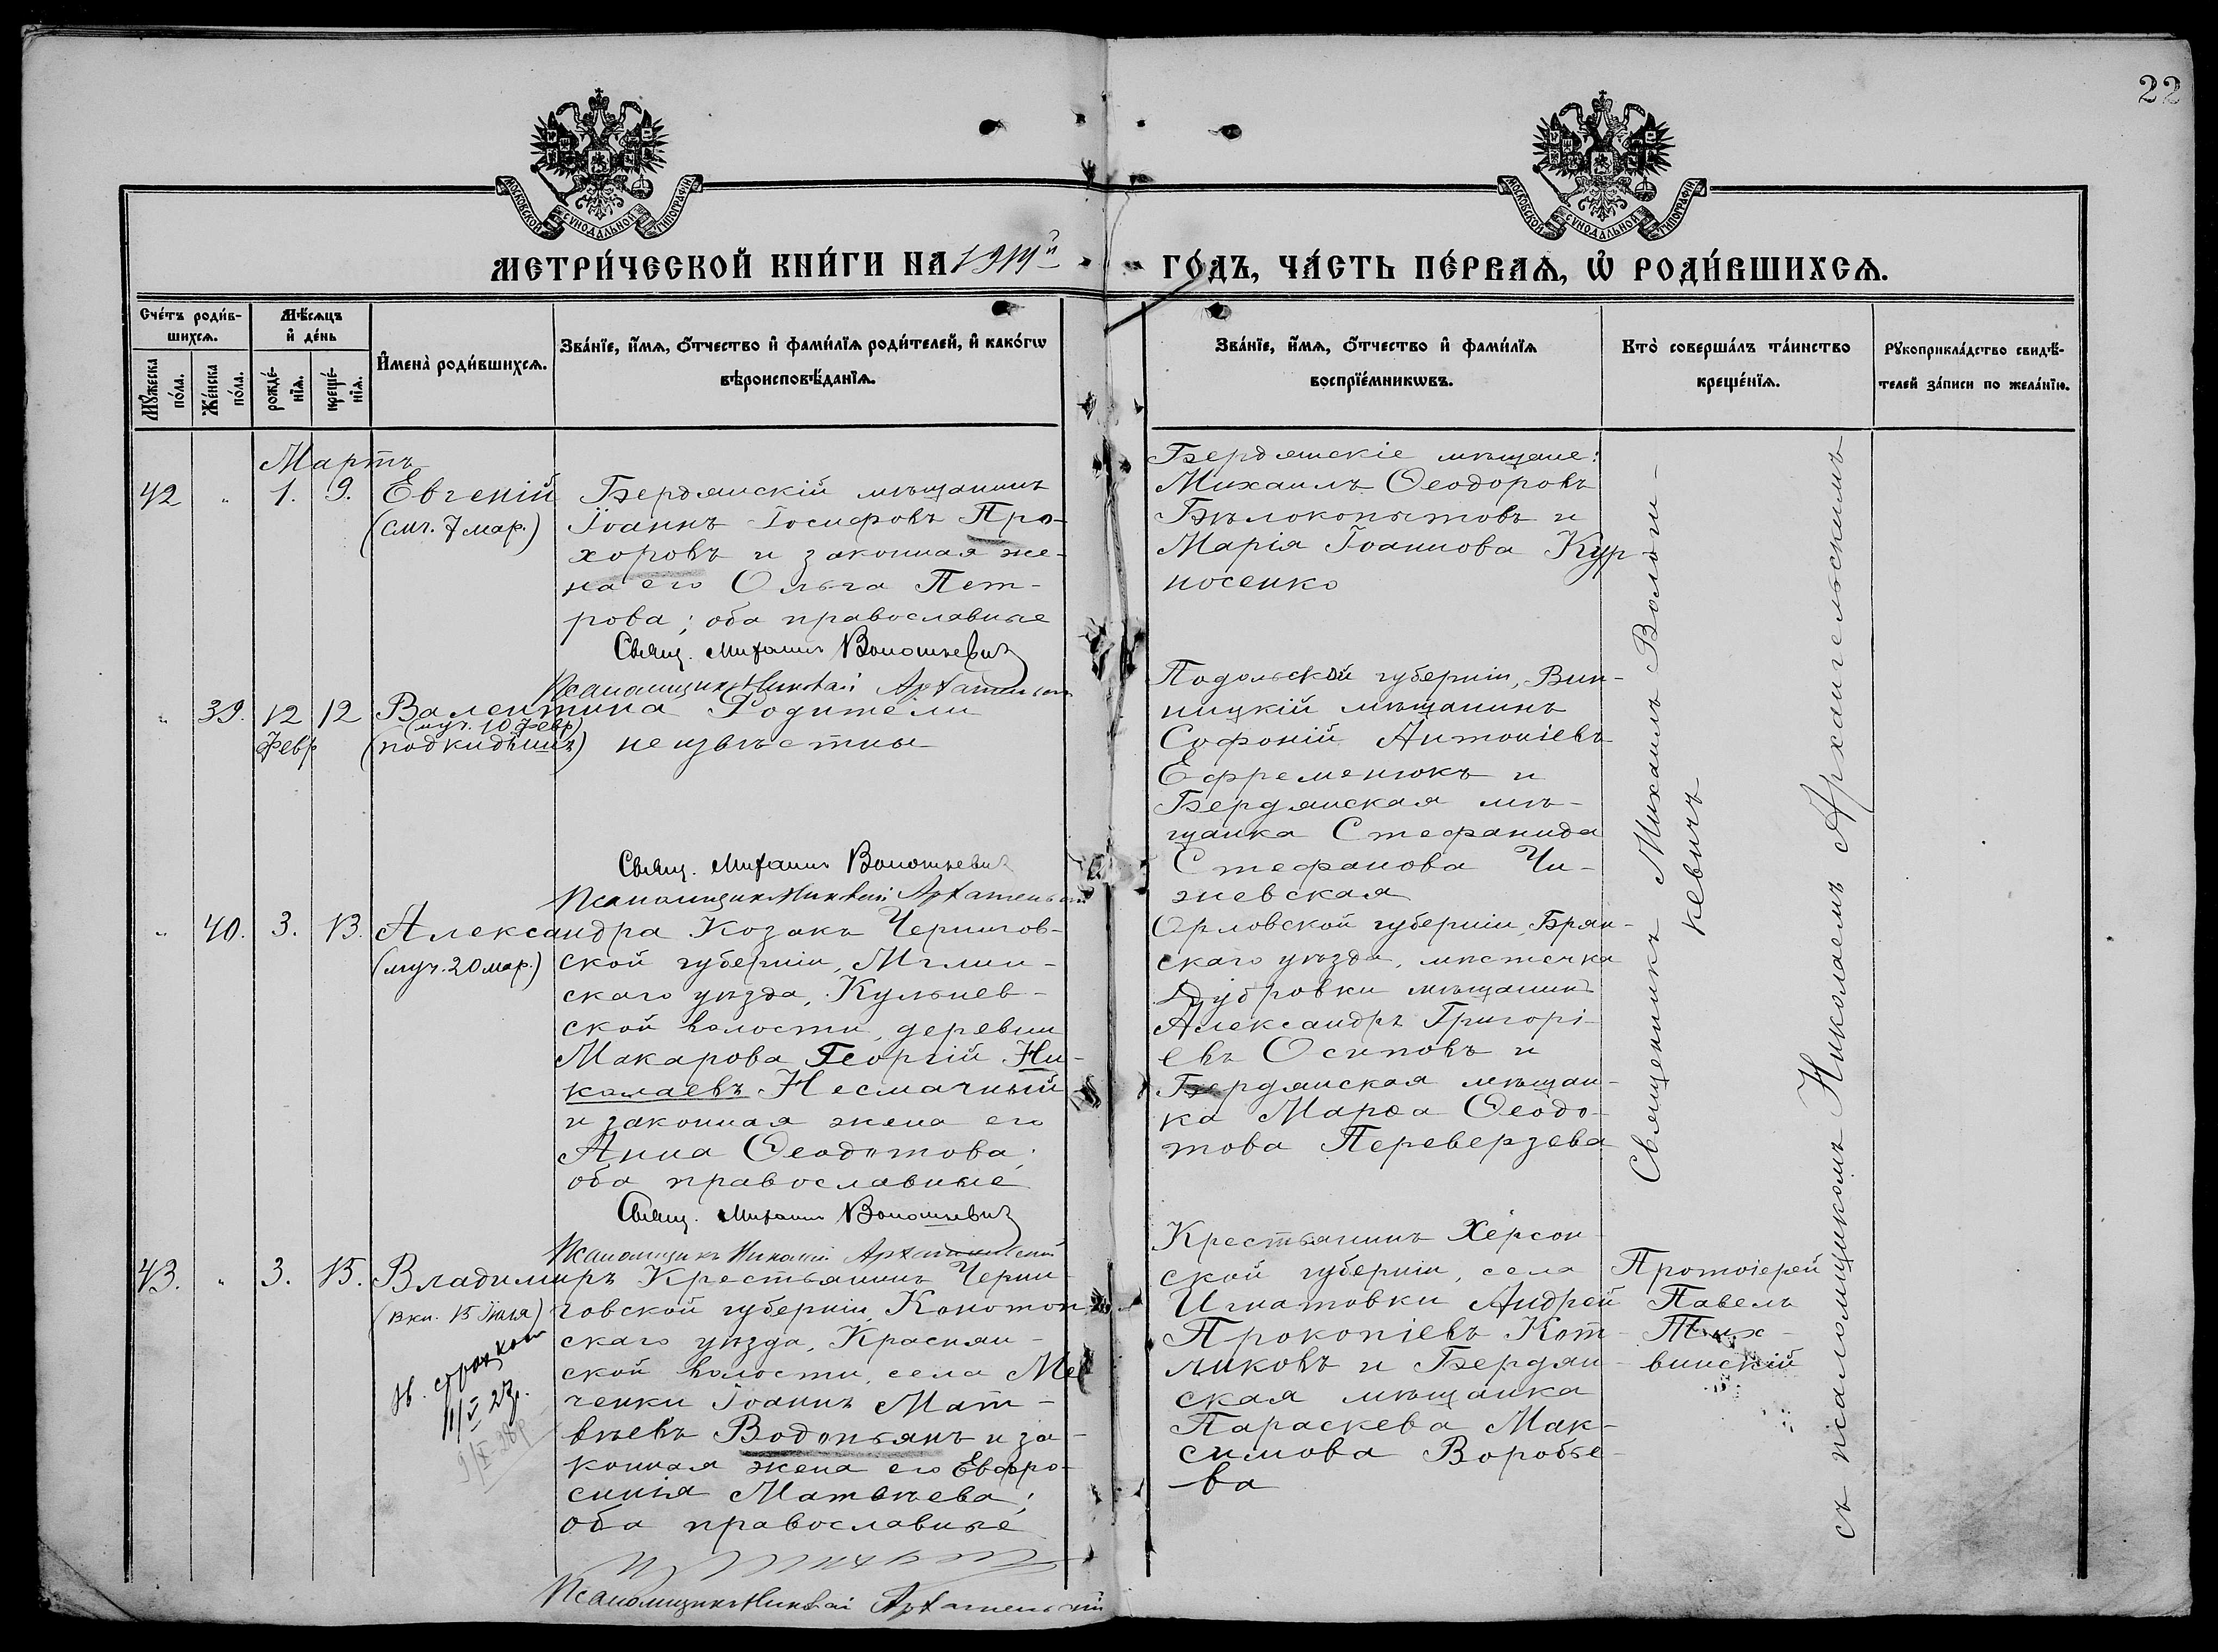 22
МОСКОВСКОЙ СѴНОДАЛЬНОЙ ТИПОГРАФІИ.
МОСКОВСКОЙ СѴНОДАЛЬНОЙ ТИПОГРАФІИ.
МЕТРИ́ЧЕСКОЙ КНИ́ГИ НА
ГО́ДЪ, ЧА́СТЬ ПЕ́РВАѦ, Ѡ҆ РОДИ́ВШИХСѦ.
Сче́тъ роди́в-
шихсѧ.
Мꙋ́жеска по́ла.
Же́нска по́ла.
Мѣ́сѧцъ
и҆ де́нь
рожде́-
нїѧ.
креще́-
нїѧ.
И҆мена̀ роди́вшихсѧ.
Зва́нїе, и҆́мѧ, ѻ҆́тчество и҆ фами́лїѧ роди́телей, и҆ како́гѡ
вѣроисповѣ́данїѧ.
Зва́нїе, и҆́мѧ, ѻ҆́тчество и҆ фами́лїѧ
воспрїе́мникѡвъ.
Кто̀ соверша́лъ та́инство
креще́нїѧ.
Рꙋкоприкла́дство свидѣ́-
телей за́писи по жела́нїю.
Мартъ
42 " 1. 9. Евгеній
(смч. 7 мар.)
Бердянскій мѣщанинъ
Іоаннъ Іосифовъ Про-
хоровъ и законная же-
на его Ольга Пет-
рова; оба православные
Свящ. Михаилъ Волошкевичъ
Псаломщикъ Николай Архангельскій
Бердянскіе мѣщане:
Михаилъ Ѳеодоровъ
Бѣлокопытовъ и
Марія Іоаннова Кур-
носенко
" 39. 12 12 Валентина
Февр
(муч. 10 февр)
(подкидышъ)
Родители
неизвѣстны
Свящ. Михаилъ Волошкевичъ
Псаломщикъ Николай Архангельскій
Подольской губерніи, Вин-
ницкій мѣщанинъ
Софоній Антоніевъ
Ефременюкъ и
Бердянская мѣ-
щанка Стефанида
Стефанова Чи-
жевская
" 40. 3. 13. Александра
(муч. 20 мар.)
Козакъ Чернигов-
ской губерніи, Мглин-
скаго уѣзда, Кульнев-
ской волости, деревни
Макарова Георгій Ни-
колаевъ Несмачный
и законная жена его
Анна Ѳеодотова;
оба православные
Свящ. Михаилъ Волошкевичъ
Псаломщикъ Николай Архангельскій
Орловской губерніи, Брян-
скаго уѣзда, мѣстечка
Дубровки мѣщанинъ
Александръ Григорі-
евъ Осиповъ и
Бердянская мѣщан-
ка Марѳа Ѳеодо-
това Переверзева
43. " 3. 15. Владиміръ
(вкн. 15 Іюля)
11/V 23.
Крестьянинъ Черни-
говской губерніи, Конотоп-
скаго уѣзда, Краснян-
ской волости, села
ченки Іоаннъ Мат-
вѣевъ Водопьянъ и за-
конная жена его Евфро-
синія Матвѣева;
оба православные
Псаломщикъ Николай Архангельскій
Крестьянинъ Херсон-
ской губерніи, села
Игнатовки Андрей
Прокопіевъ Кот-
ляковъ и Бердян-
ская мѣщанка
Параскева Мак-
симова Воробье-
ва
Священникъ Михаилъ Волош-
кевичъ
съ псаломщикомъ Николаемъ Архангельскимъ
Протоіерей
Павелъ
Тих-
винскій